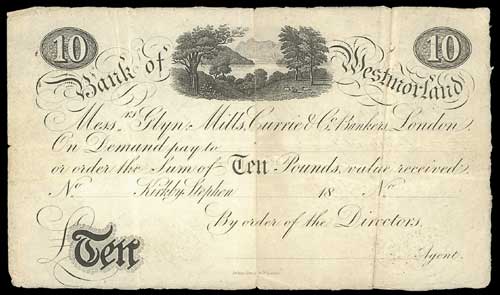 10 10
Bank of Westmorland
Mess.rs Glyn, Mills, Currie & Co. Bankers, London.
On Demand pay to
or order the Sum of Ten Pounds, value received
No. Kirkby Stephen 18 No.
By order of the Directors,
£Ten Agent.